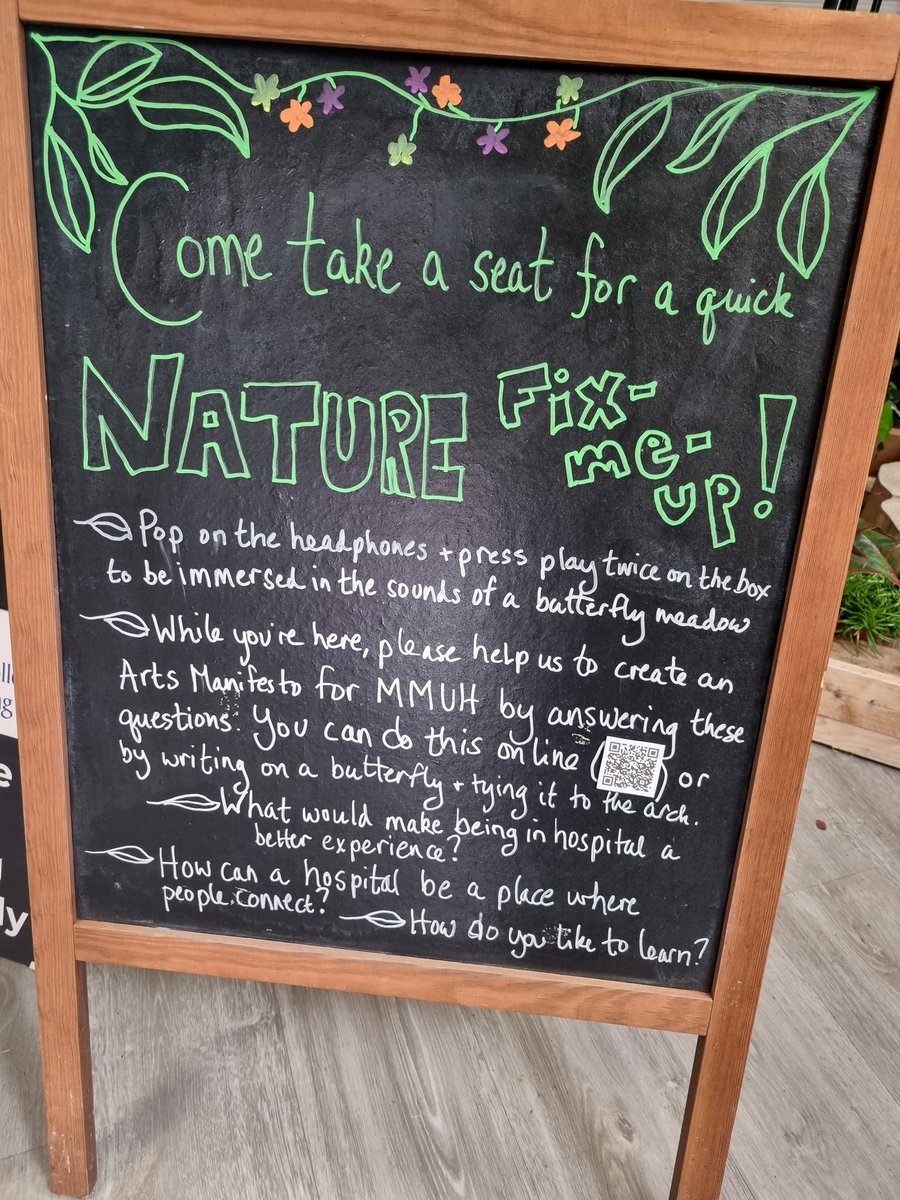 Come take a seat for a quick
NATURE Fix-
me-
up!
Pop on the headphones + press play twice on the box
to be immersed in the sounds of a butterfly meadow
While you're here, please help us to create an
Arts Manifesto for MMUH by answering these
questions. You can do this online ( ) or
by writing on a butterfly + tying it to the arch.
What would make being in hospital a
better experience?
How can a hospital be a place where
people connect?
How do you like to learn?